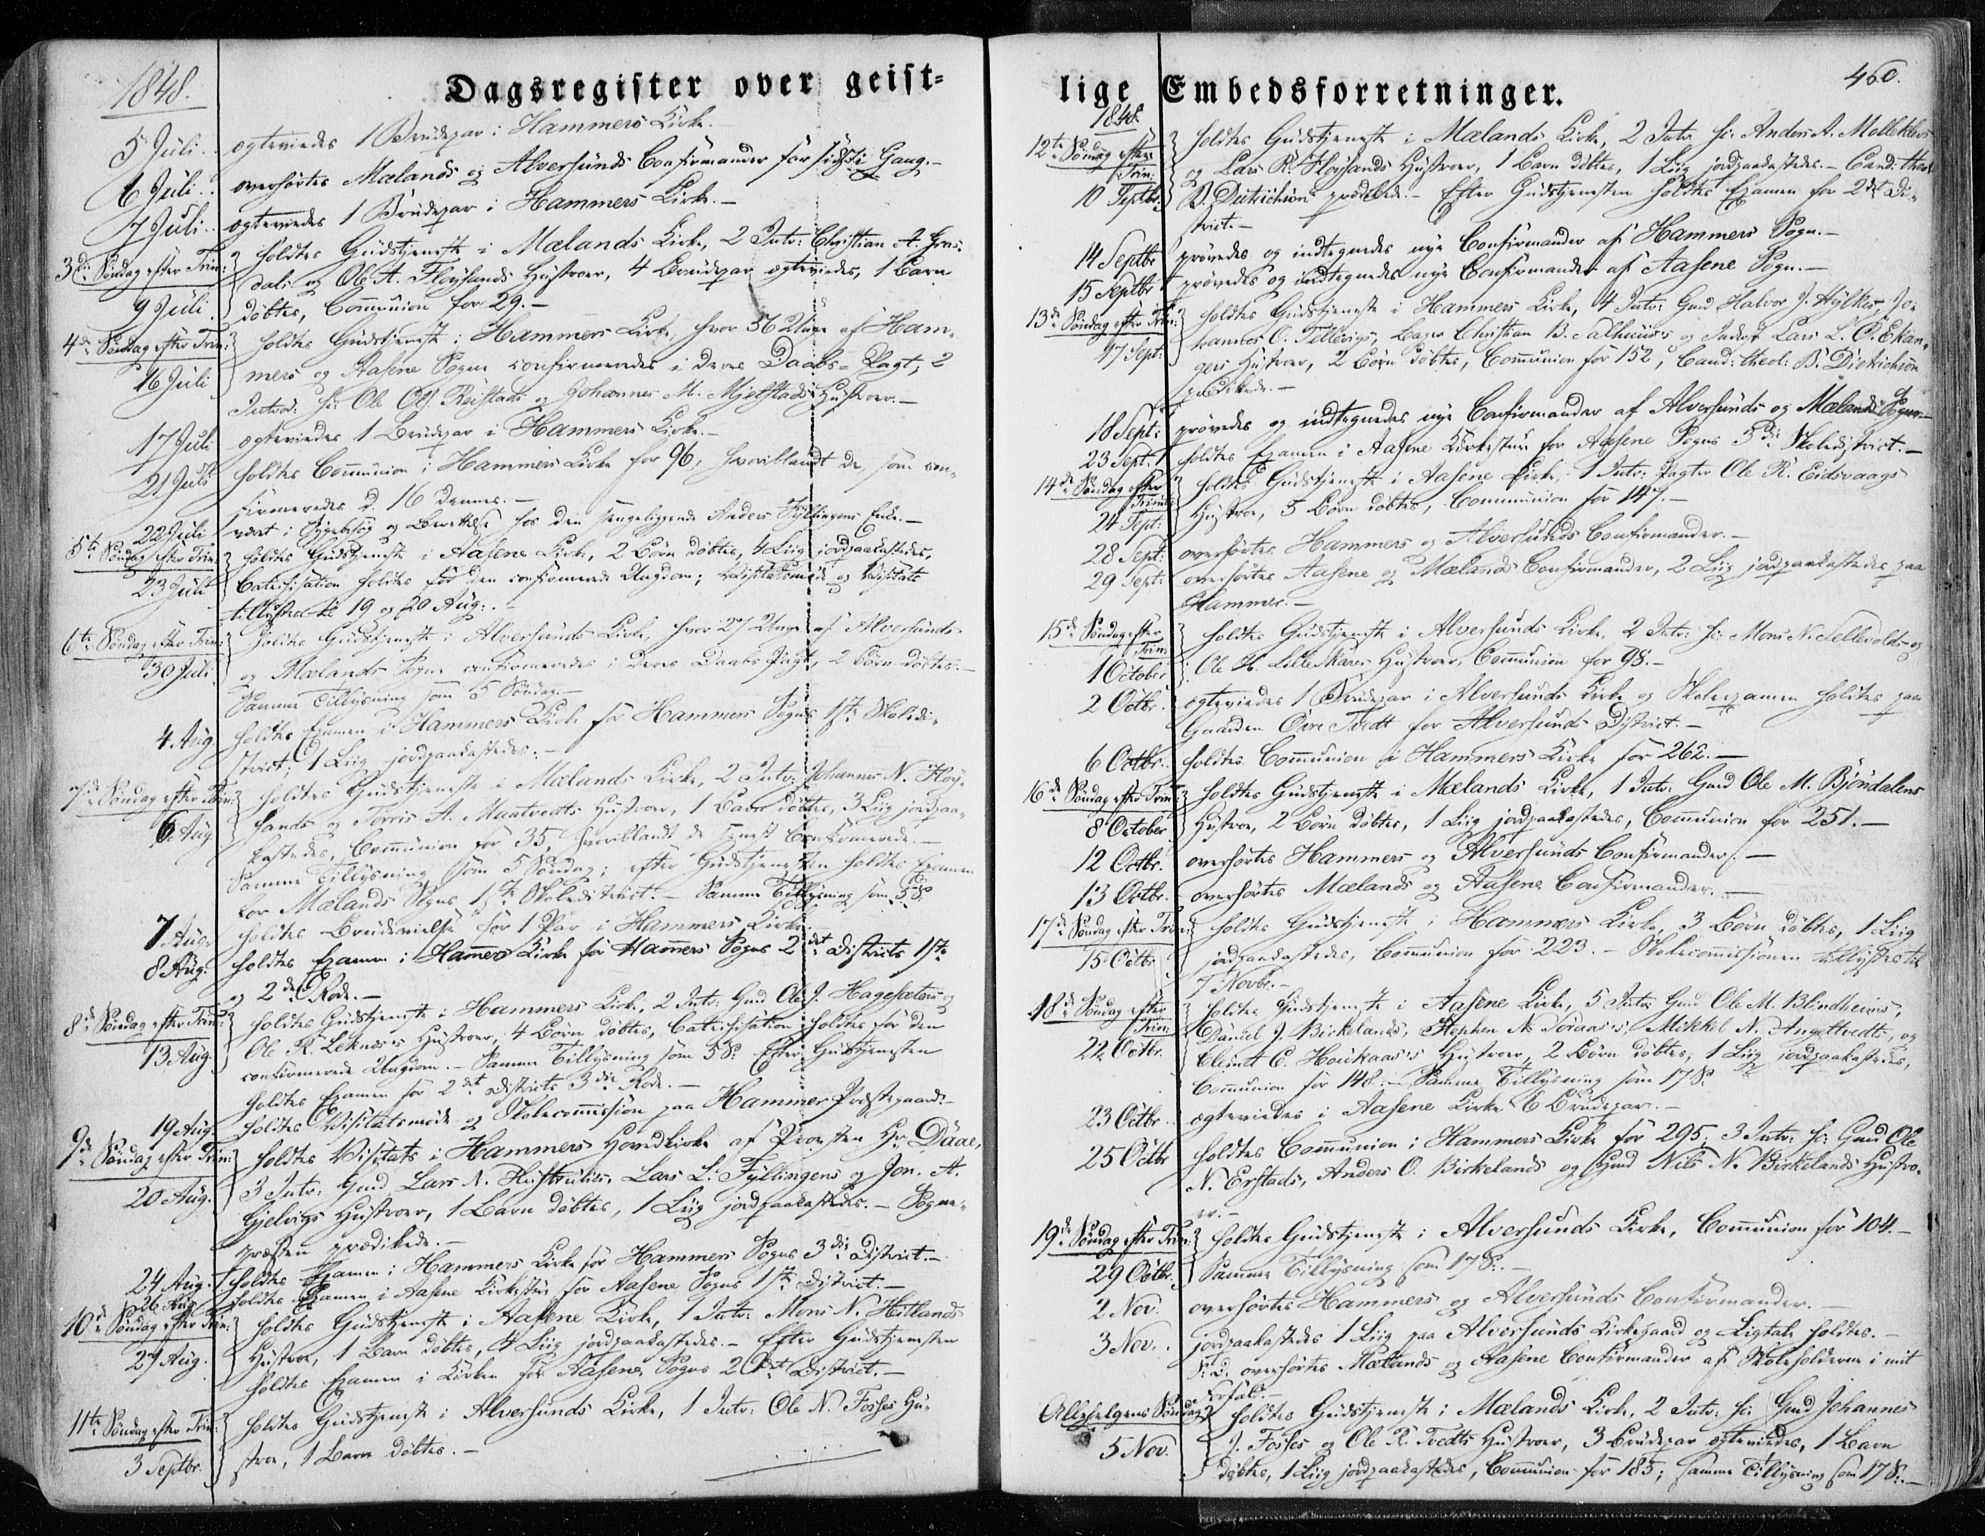 1848.
Dagsregister over geist-
5 Juli .. ægteviedes 1 Brudepar i Hammers Kirke.
6 Juli .. overhørtes Mælands og Alversunds Confirmander for sidste Gang.-
7 Juli .. ægteviedes 1 Brudepar i Hammers Kirke.-
3die Søndag efter Trin: holdtes Gudstjeneste i Mælands Kirke, 2 Intr: Christian A.
9 Juli. dals og Ole A. Fløisands Hustroer, 4 Brudepar ægteviedes, 1 Barn
døbtes, Communion for 29.-
4de Søndag efter Trin: holdtes Gudstjeneste i Hammers Kirke, hvor 56 Unge af Ham-
16 Juli mers og Aasene Sogne confirmeredes i deres Daabs-Pagt, 2
Introd: s: Ole Ols. Reistads og Johannes M. Mjelstads Hustroer.-
17 Juli ægteviedes 1 Brudepar i Hammers Kirke.-
21 Juli holdtes Communion i Hammers Kirke for 96, hvoriblandt de, som con-
firmeredes d. 16 dennes.-
22 Juli. været i Sygebesøg og Berettelse hos den sengeliggende Anders Fyllingens Enke.-
5te Søndag efter Trin: holdtes Gudstjeneste i Aasene Kirke, 2 Børn døbtes, 4 Liig jordpaakastedes,
23 Juli Catechisation holdtes for den confirmerede Ungdom; Visitatsmøde og Visitats
tillystes til 19 og 20 Aug:.-
6te Søndag efter Trin: holdtes Gudstjeneste i Alversunds Kirke, hvor 27 Unge af Alversunds
30 Juli. og Mælands Sogne confirmeredes i deres Daabs Pagt, 2 Børn døbtes.-
Samme Tillysning som 5 Søndag.-
4 Aug. holdtes Examen i Hammers Kirke for Hammers Sogns 1ste Skoledi-
strict; 1 Liig jordpaakastedes.-
7de Søndag efter Trin: holdtes Gudstjeneste i Mælands Kirke, 2 Intr: Johannes N. Fløi-
6 Aug. sands og Sjorris A. Maatvedts Hustroer, 1 Barn døbtes, 3 Liig jordpaa-
kastedes, Communion for 35, hvoriblandt de senest Confirmerede.-
Samme Tillysning som 5 Søndag; efter Gudstjenesten holdtes Examen
for Mælands Sogns 1ste Skoledistrict.- Samme Tillysning som 5 S.
7 Aug. holdtes Brudevielse for 1 Par i Hammers Kirke.
8 Aug. holdtes Examen i Hammers Kirke for Hammers Sogns 2det Districts 1ste
og 2den Rode.-
8de Søndag efter Trin: holdtes Gudstjeneste i Hammers Kirke, 2 Intr: Gmd Ole J. Hagesæters og
13 Aug. Ole K. Leknæs's Hustroer, 4 Børn døbtes, Catechisation holdtes for den
confirmerede Ungdom.- Samme Tillysning som 5 S. Efter Gudstjenesten
holdtes Examen for 2det Districts 3die Rode.-
19 Aug. holdtes Visitatsmøde og Skolecommission paa Hammer Præstegaard.-
9de Søndag efter Trin: holdtes Visitats i Hammers Hovedkirke af Provsten Hr. Daae,
20 Aug. 3 Intr: Gmd Lars N. Lars L. Fyllingens og Jon. A.
Gjelvigs Hustroer, 1 Barn døbtes, 1 Liig jordpaakastedes.- Sogne-
præsten prædikede.-
24 Aug. holdtes Examen i Hammers Kirke for Hammers Sogns 3die District.-
26 Aug holdtes Examen i Aasene Kirkestue for Aasene Sogns 1ste District.-
10de Søndag efter Trin: holdtes Gudstjeneste i Aasene Kirke, 1 Intr: Mons N. Heitlands
27 Aug. Hustroe, 1 Barn døbtes, 4 Liig jordpaakastedes.- Efter Gudstjenesten
holdtes Examen i Kirken for Aasene Sogns 2det District.-
11te Søndag efter Trin: holdtes Gudstjeneste i Alversunds Kirke, 1 Intr: Ole N. Fosses Hu-
3 Septbr. stroe, 1 Barn døbtes.-
lige Embedsforretninger.
460.
1848.
12te Søndag efter Trin: holdtes Gudstjeneste i Mælands Kirke, 2 Intr: s: Anders A.
10 Septbr. og Lars R. Fløisands Hustroer, 1 Barn døbtes, 1 Liig jordpaakastedes.- Cand: theol:
B. Dietrichson prædikede.- Efter Gudstjenesten holdtes Examen for 2det Di-
strict.-
14 Septbr prøvedes og indtegnedes nye Confirmander af Hammers Sogn.-
15 Septbr prøvedes og indtegnedes nye Confirmander af Aasene Sogn.-
13de Søndag efter Trin: holdtes Gudstjeneste i Hammers Kirke, 4 Intr: Gmd Halvor J. Jo-
17 Sept: hannes O. Tellevigs, Christian B. Salhuus's og Lars L. O. Ekan-
gers Hustroer, 2 Børn døbtes, Communion for 152, Cand: theol: B. Dietrichson
prædikede.-
18 Sept: prøvedes og indtegnedes nye Confirmander af Alversunds og Mælands Sogne.-
23 Sept: holdtes Examen i Aasene Kirkestue for Aasene Sogns 3die Skoledistrict.-
14de Søndag efter Trinit: holdtes Gudstjeneste i Aasene Kirke, 1 Intr: Ole R. Eidsvaags
24 Sept: Hustroe, 5 Børn døbtes, Communion for 147.-
28 Sept: overhørtes Hammers og Alversunds Confirmander.-
29 Sept: overhørtes Aasene og Mælands Confirmander, 2 Liig jordpaakastedes paa
Hammer.-
15de Søndag efter Trin: holdtes Gudstjeneste i Alversunds Kirke, 2 Intr: s: Mons N. Sellevolds og
1 October Ole H. Lilleskares Hustroer, Communion for 98.-
2 Octbr. ægteviedes 1 Brudepar i Alversunds Kirke og Skoleexamen holdtes paa
Gaarden Øvre Tvedt for Alversunds District.-
6 Octbr. holdtes Communion i Hammers Kirke for 262.-
16de Søndag efter Trin: holdtes Gudstjeneste i Mælands Kirke, 1 Intr: Gmd Ole M. Bjøndalens
8 October Hustroe, 2 Børn døbtes, 1 Liig jordpaakastedes, Communion for 251.-
12 Octbr. overhørtes Hammers og Alversunds Confirmander.-
13 Octbr. overhørtes Mælands og Aasene Confirmander.-
17de Søndag efter Trin: holdtes Gudstjeneste i Hammers Kirke, 3 Børn døbtes, 1 Liig
15 Octbr. jordpaakastedes, Communion for 223.- Skolecommissionen tillystes til
7 Novbr.-
18de Søndag efter Trin: holdtes Gudstjeneste i Aasene Kirke, 5 Intr: Gmd Ole M. Blindheims,
22 Octbr. Daniel J. Birkelands, Stephen N. Toraas's, Mikkel N. Angeltvedts, og
Clemet C. Houkaas's Hustroer, 2 Børn døbtes, 1 Liig jordpaakastedes,
Communion for 148.- Samme Tillysning som 17 S.
23 Octbr. ægteviedes i Aasene Kirke 6 Brudepar.-
25 Octbr holdtes Communion i Hammers Kirke for 295, 3 Intr: s: Gmd Ole
N. Erstads, Anders O. Birkelands og Gmd Nils N. Birkelands Hustro-
er.-
19de Søndag efter Trin: holdtes Gudstjeneste i Alversunds Kirke, Communion for 104.-
29 Octbr. Samme Tillysning som 17 S.-
2 Nov. overhørtes Hammers og Alversunds Confirmander.-
3 Nov. jordpaakastedes 1 Liig paa Alversunds Kirkegaard og Ligtale holdtes.-
S. D. overhørtes Mælands og Aasene Confirmander af Skoleholderne i mit
Forfald.-
Allehelgens Søndag holdtes Gudstjeneste i Mælands Kirke, 2 Intr: s: Gmd Johannes
5 Nov. J. Fosses og Ole R. Tvedts Hustroer, 3 Brudepar ægteviedes, 1 Barn
døbtes, 1 Liig jordpaakastedes, Communion for 185; samme Tillysning som 17 S.-